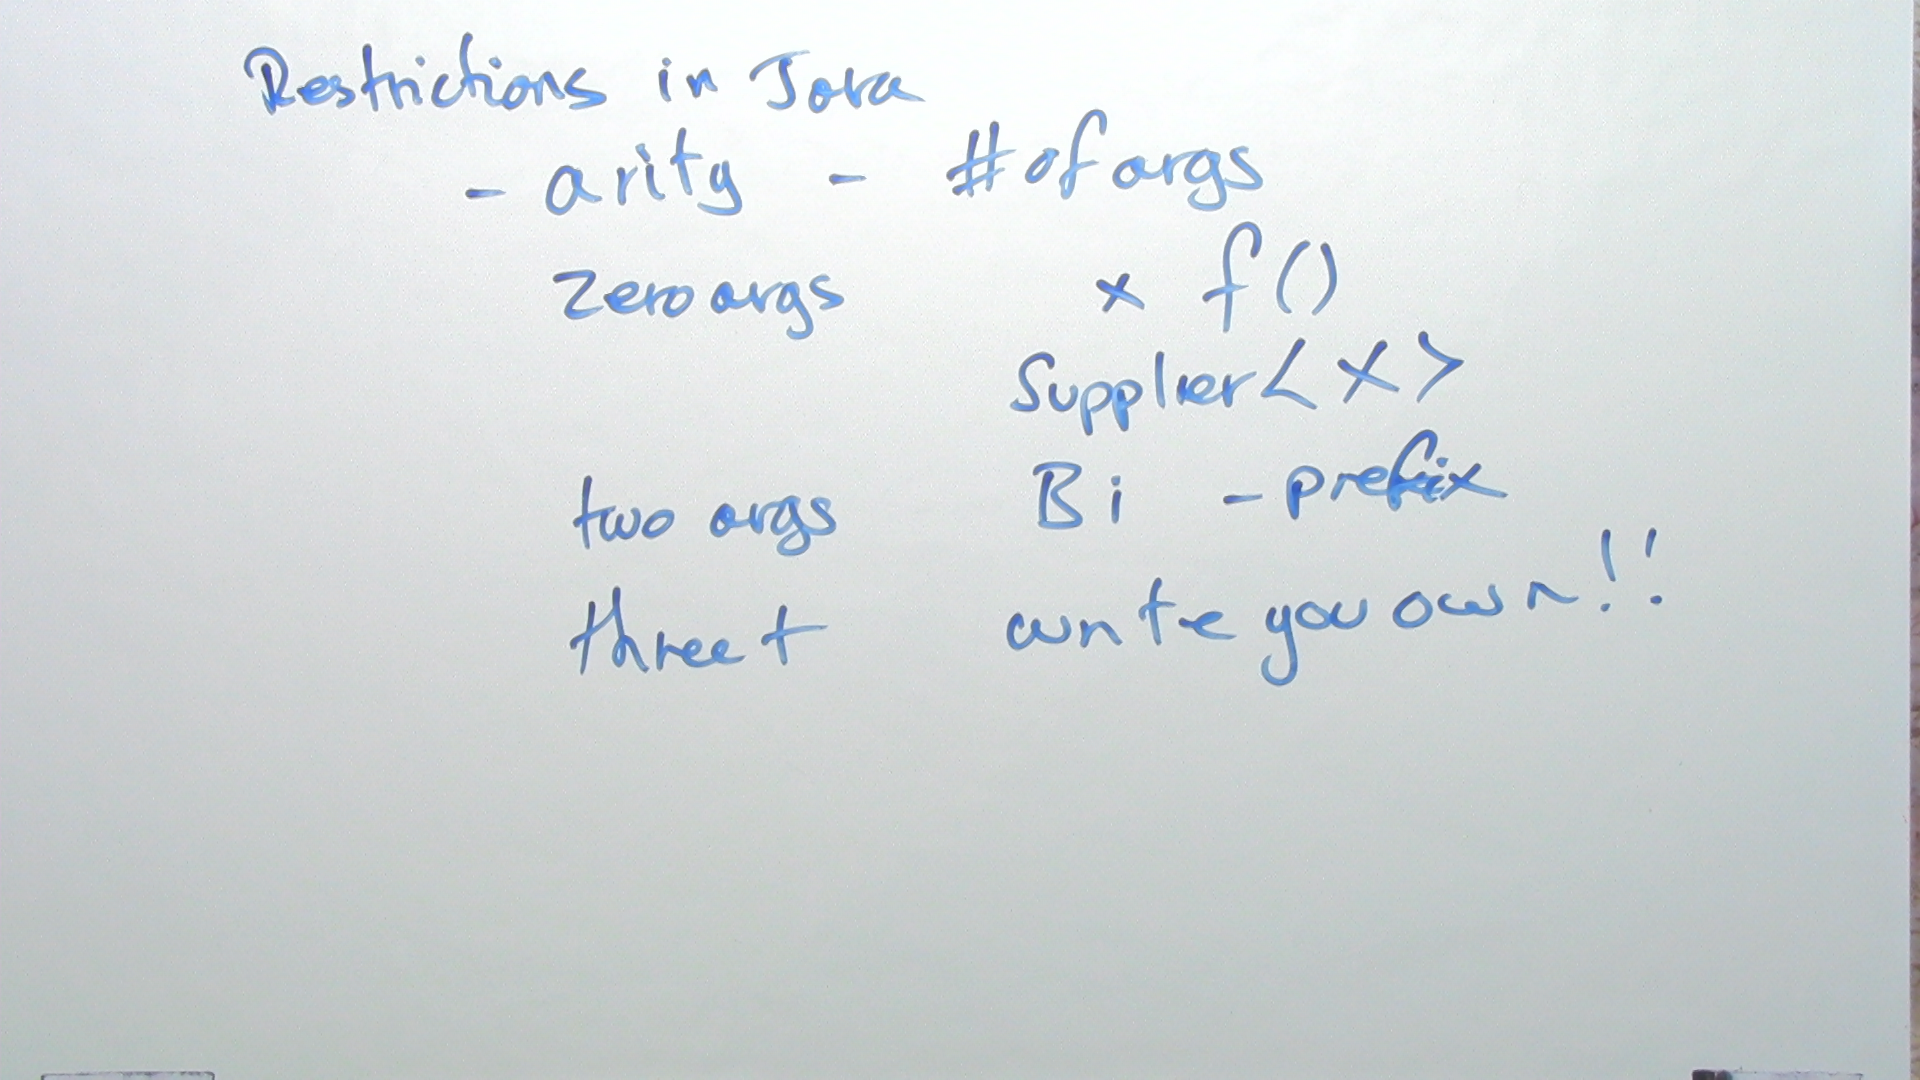 Restrictions in Java
- arity - # of args
zero args x f()
Supplier<X>
two args Bi - prefix
three + write you own!!